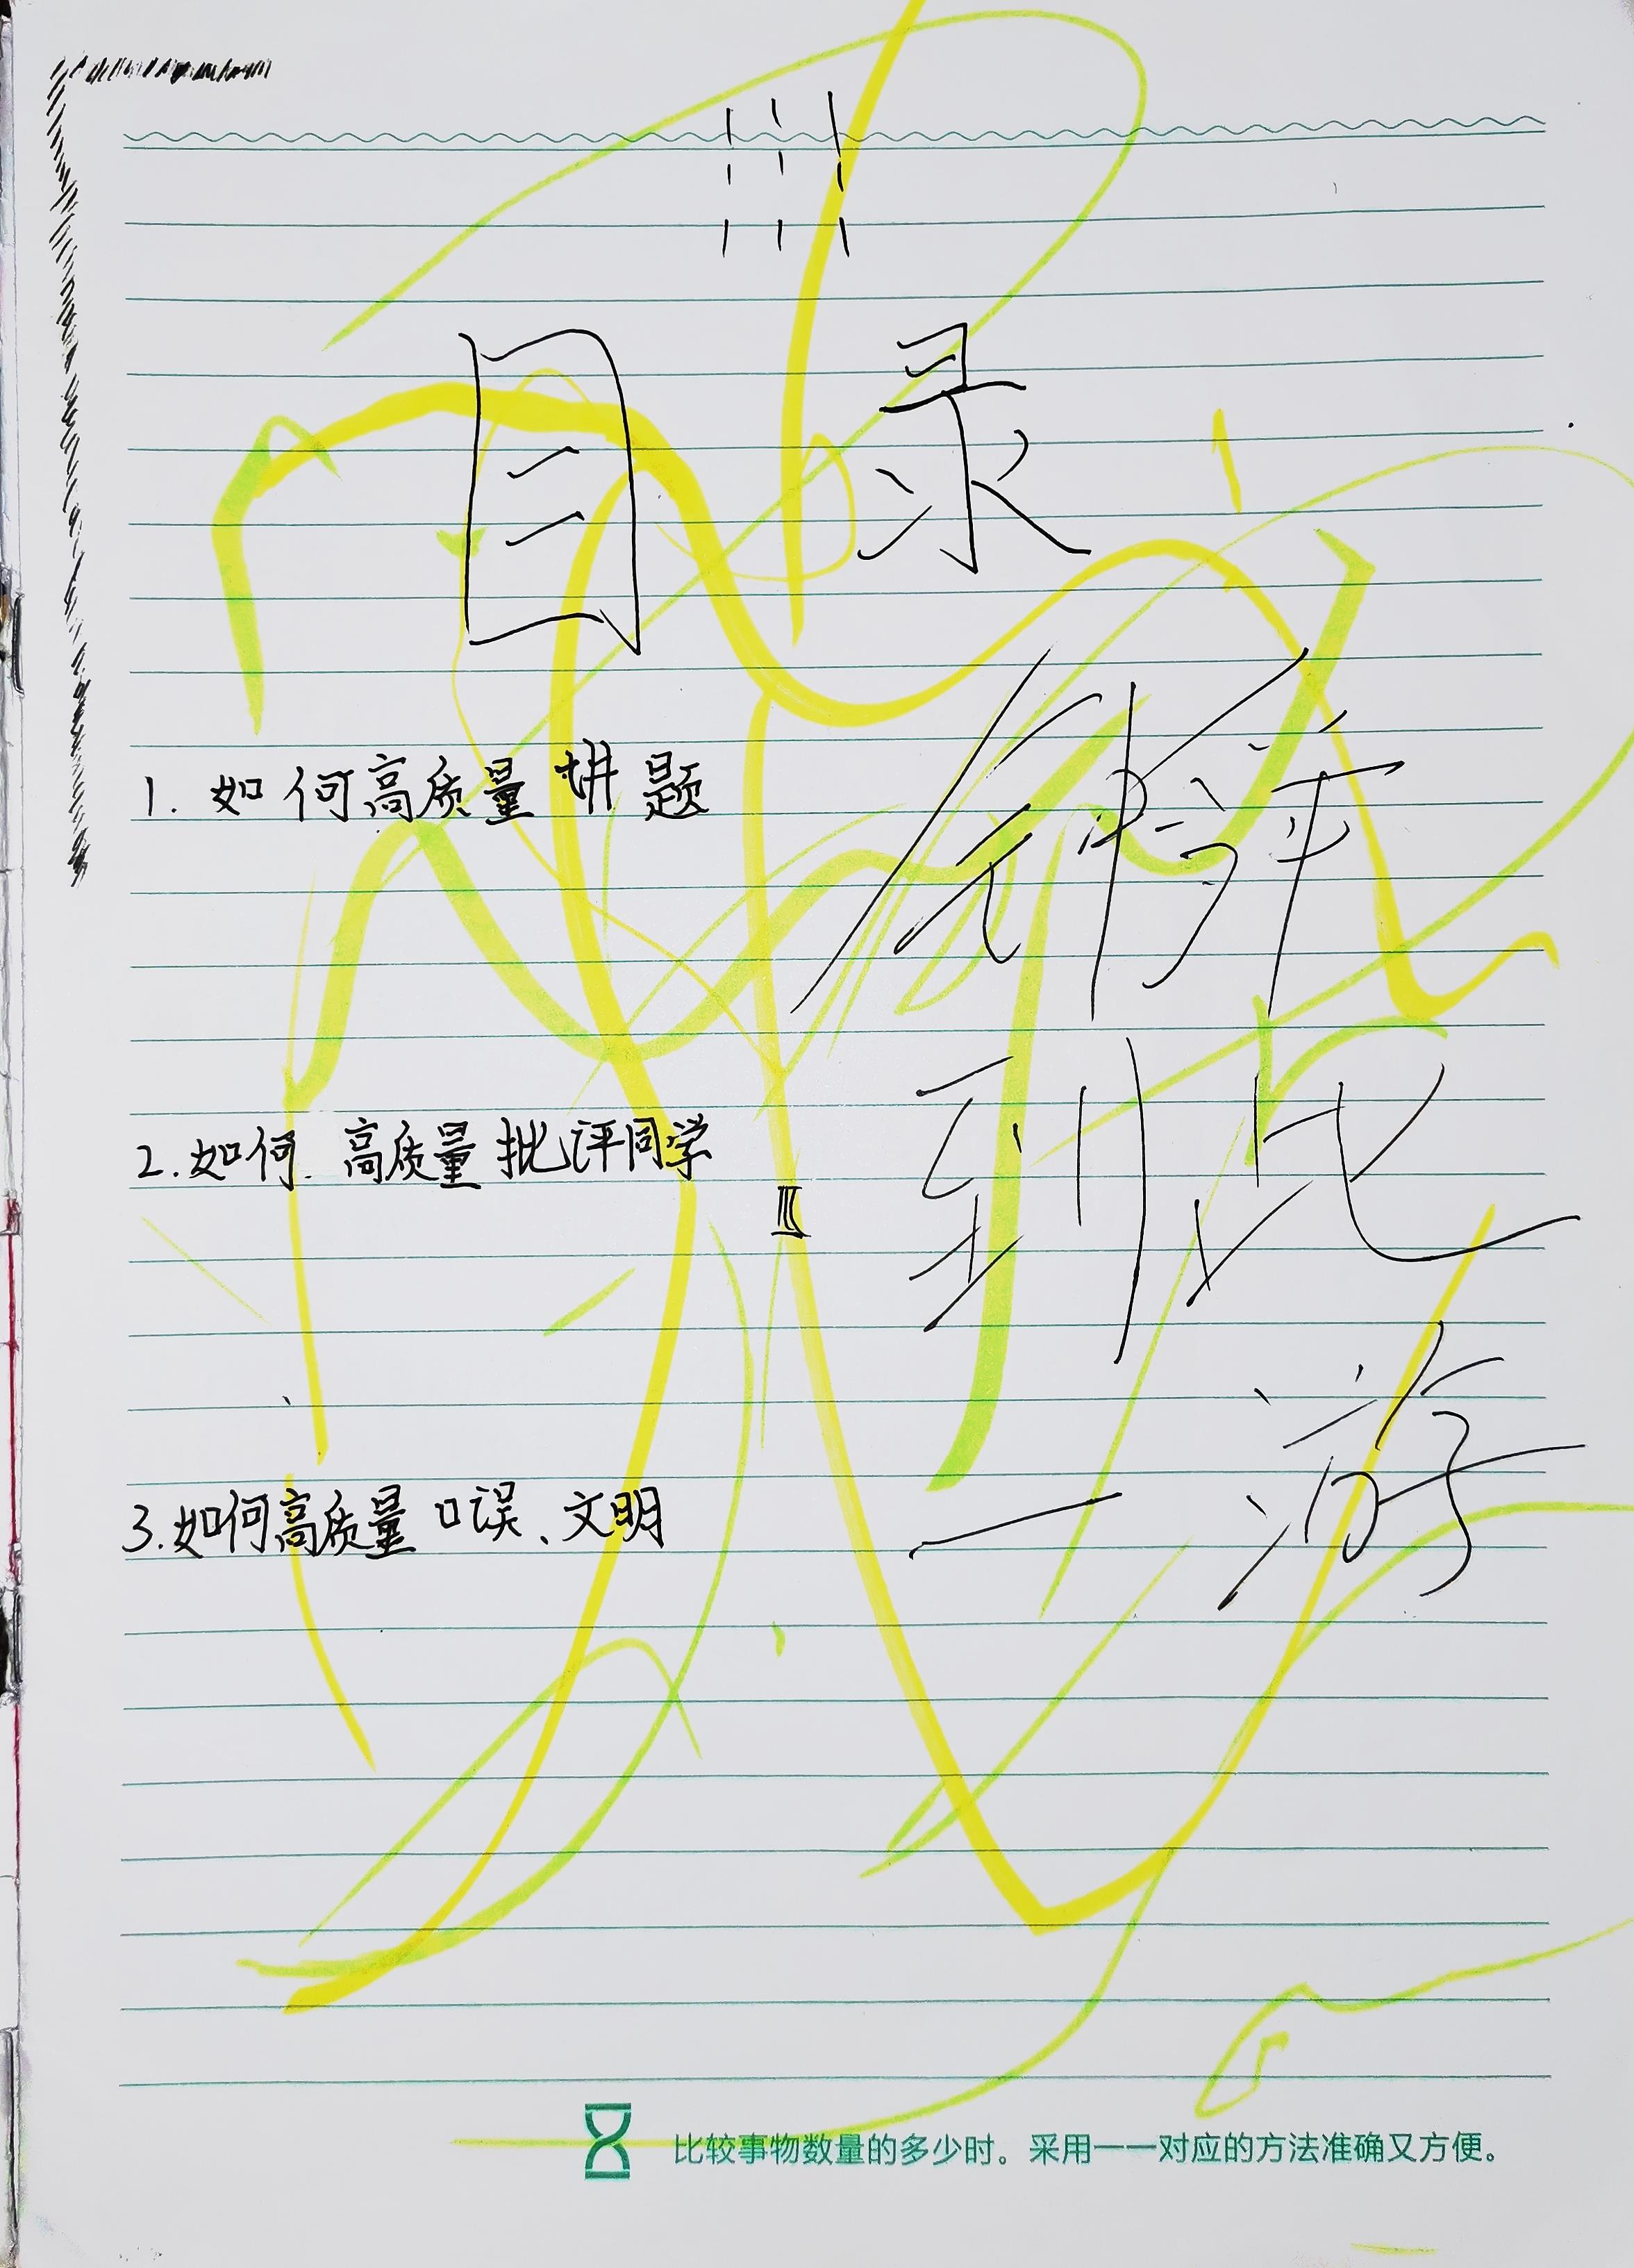 目录
1. 如何高质量讲题
2. 如何高质量批评同学
3. 如何高质量口误、文明
到此
一游
比较事物数量的多少时。采用一一对应的方法准确又方便。